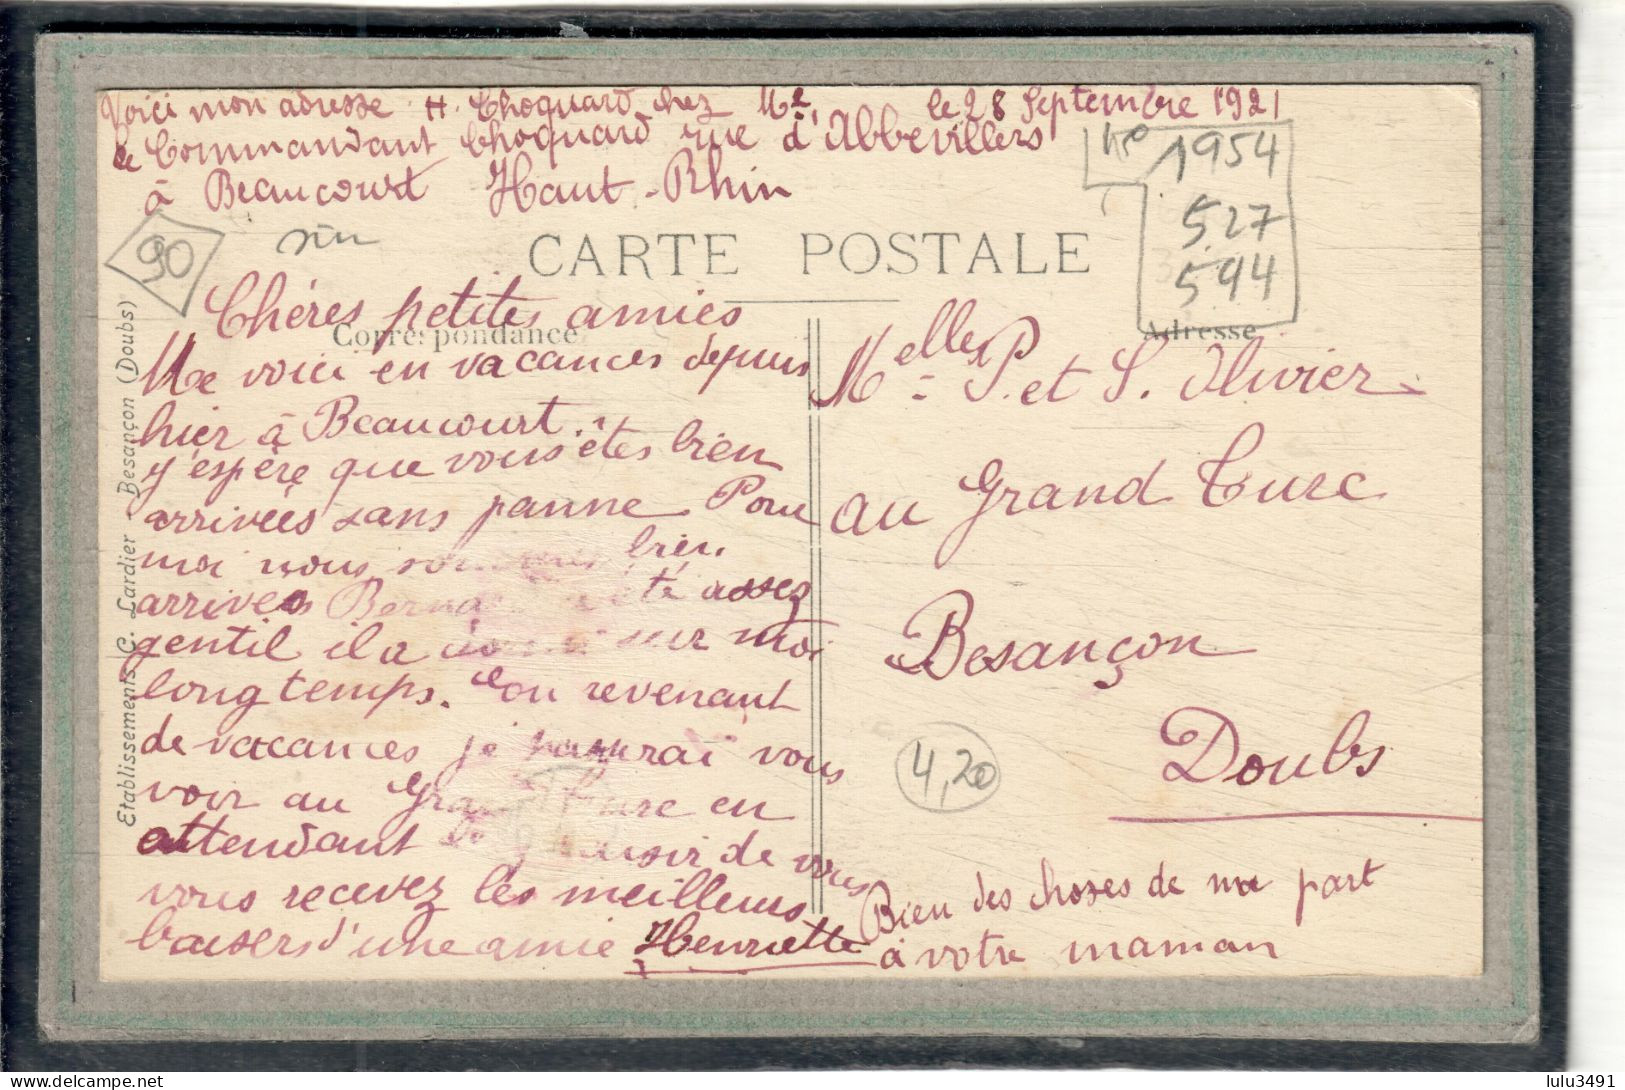 Voici mon adresse H. Choquard chez Mr le 28 Septembre 1921
le Commandant Choquard rue d'Abbevillers
à Beaucourt Haut-Rhin
No 1954
527
594
90
CARTE POSTALE
Correspondance
Adresse
Etablissements C. Lardier - Besançon (Doubs)
Chéres petites amies
Me voici en vacances depuis
hier à Beaucourt.
j'espère que vous êtes bien
arrivées sans panne Pour
moi nous sommes bien
arrivées été assez
gentil il a sur moi
longtemps. en revenant
de vacances je vous
voir au Grand Turc en
attendant de vous
vous recevez les meilleurs
baisers d'une amie Henriette
Melles P. et S. Olivier
au Grand Turc
Besançon
Doubs
4,20
Bien des choses de ma part
à votre maman
lulu3491